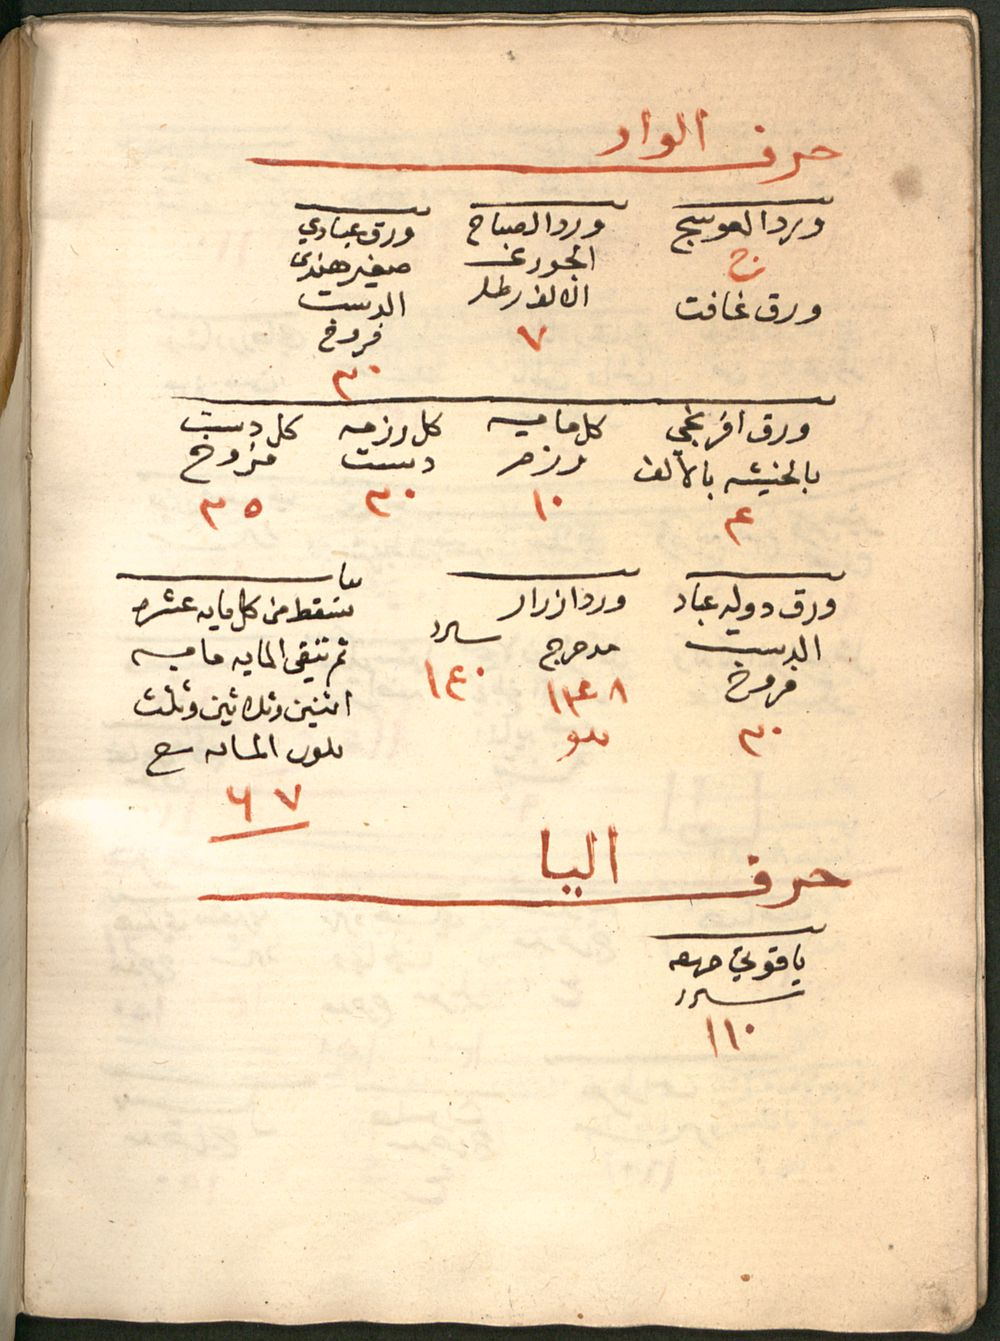 حرف الواو
ورد العوسج
ورق غافت
ورد الصباح
الجوري
الالف رطل
٧
ورق عبادي
صغير هندي
الدست
فروخ
٣٠
ورق افرنجي
بالخنيشه بالالف
٤
كل ماميه
رزم
١٠
كل رزمه
دست
٢٠
كل دست
فروخ
٢٥
ورق دوليه عباد
الدست
فروخ
٢٠
ورد ازرار
مدحرج
١١٤٨
١٤٠
سقط من كل مايه عشره
تم تنقى المايه ماميه
اثنين وثلاثين وثلث
٦٧
حرف اليا
ياقوتي
١١٠